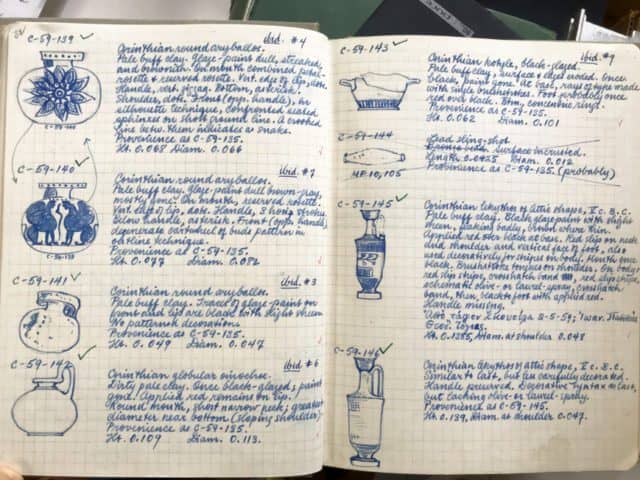 C-59-139 ✓ ibid. #4
Corinthian round aryballos.
Pale buff clay. Glaze-paint dull, streaked
and brownish. On mouth combined petal-
rosette & reserved rosette. Vert. edge of lip, dots.
Handle, vert. zigzag. Bottom, asterisk.
Shoulder, dots. Front (opp. handle), in
silhouette technique, confronted seated
sphinxes on short ground line. A crooked
line betw. them indicates a snake.
Provenience as C-59-135.
Ht. 0.068 Diam. 0.066
C-59-140
C-59-140 ✓ ibid. #7
Corinthian round aryballos.
Pale buff clay. Glaze-paint dull brown-gray,
mostly gone. On mouth, reserved rosette.
Vert. edge of lip, dots. Handle, 3 horiz. strokes.
Below handle, asterisk. Front (opp. handle)
degenerate cartwheel of buds pattern in
outline technique.
Provenience as C-59-135.
Ht. 0.077 Diam. 0.082
C-59-139
C-59-141 ✓ ibid. #3
Corinthian round aryballos.
Pale buff clay. Traces of glaze-paint on
front and lip are black with slight sheen.
No patternsh decoration.
Provenience as C-59-135.
Ht. 0.049 Diam. 0.047
C-59-142 ✓ ibid. #6
Corinthian globular oinochoe.
Dirty pale clay. Once black-glazed; paint
gone. Applied red remains on lip.
Round mouth, short narrow neck; greatest
diameter near bottom (sloping shoulder).
Provenience as C-59-135.
Ht. 0.109 Diam. 0.113.
C-59-143 ✓ ibid. #9
Corinthian kotyle, black-glazed.
Pale buff clay, surface & edges eroded. Once
black, paint gone. At base, rays of type made
with single brushstroke. Foot probably once
red over black. Btm, concentric rings.
Provenience as C-59-135.
Ht. 0.062 Diam. 0.101
C-59-144
Lead sling-shot.
Surface incrusted.
Length 0.0425 Diam. 0.012
Provenience as C-59-135 (probably)
MF 10,105
C-59-145 ✓
Corinthian lekythos of Attic shape, V c. B.C.
Pale buff clay. Black glaze paint with slight
sheen, flaking badly, brown where thin.
Applied red over black at base. Red slip on neck
and shoulder and vertical face of foot, also
used decoratively for stripes on body. Mouth once
black. Brushstroke tongues on shoulder. On body,
red slip stripe, crosshatch band, red slip stripe,
schematic olive- or laurel-spray, crosshatch
band, then black to foot with applied red.
Handle missing.
Ht. 0.1285, Diam. at shoulder 0.048
C-59-146 ✓
Corinthian lekythos of Attic shape, V c. B.C.
Similar to last, but less carefully decorated.
Handle preserved. Decorative syntax as last,
but lacking olive- or laurel-spray.
Provenience as C-59-145.
Ht. 0.139, Diam. at shoulder 0.047.